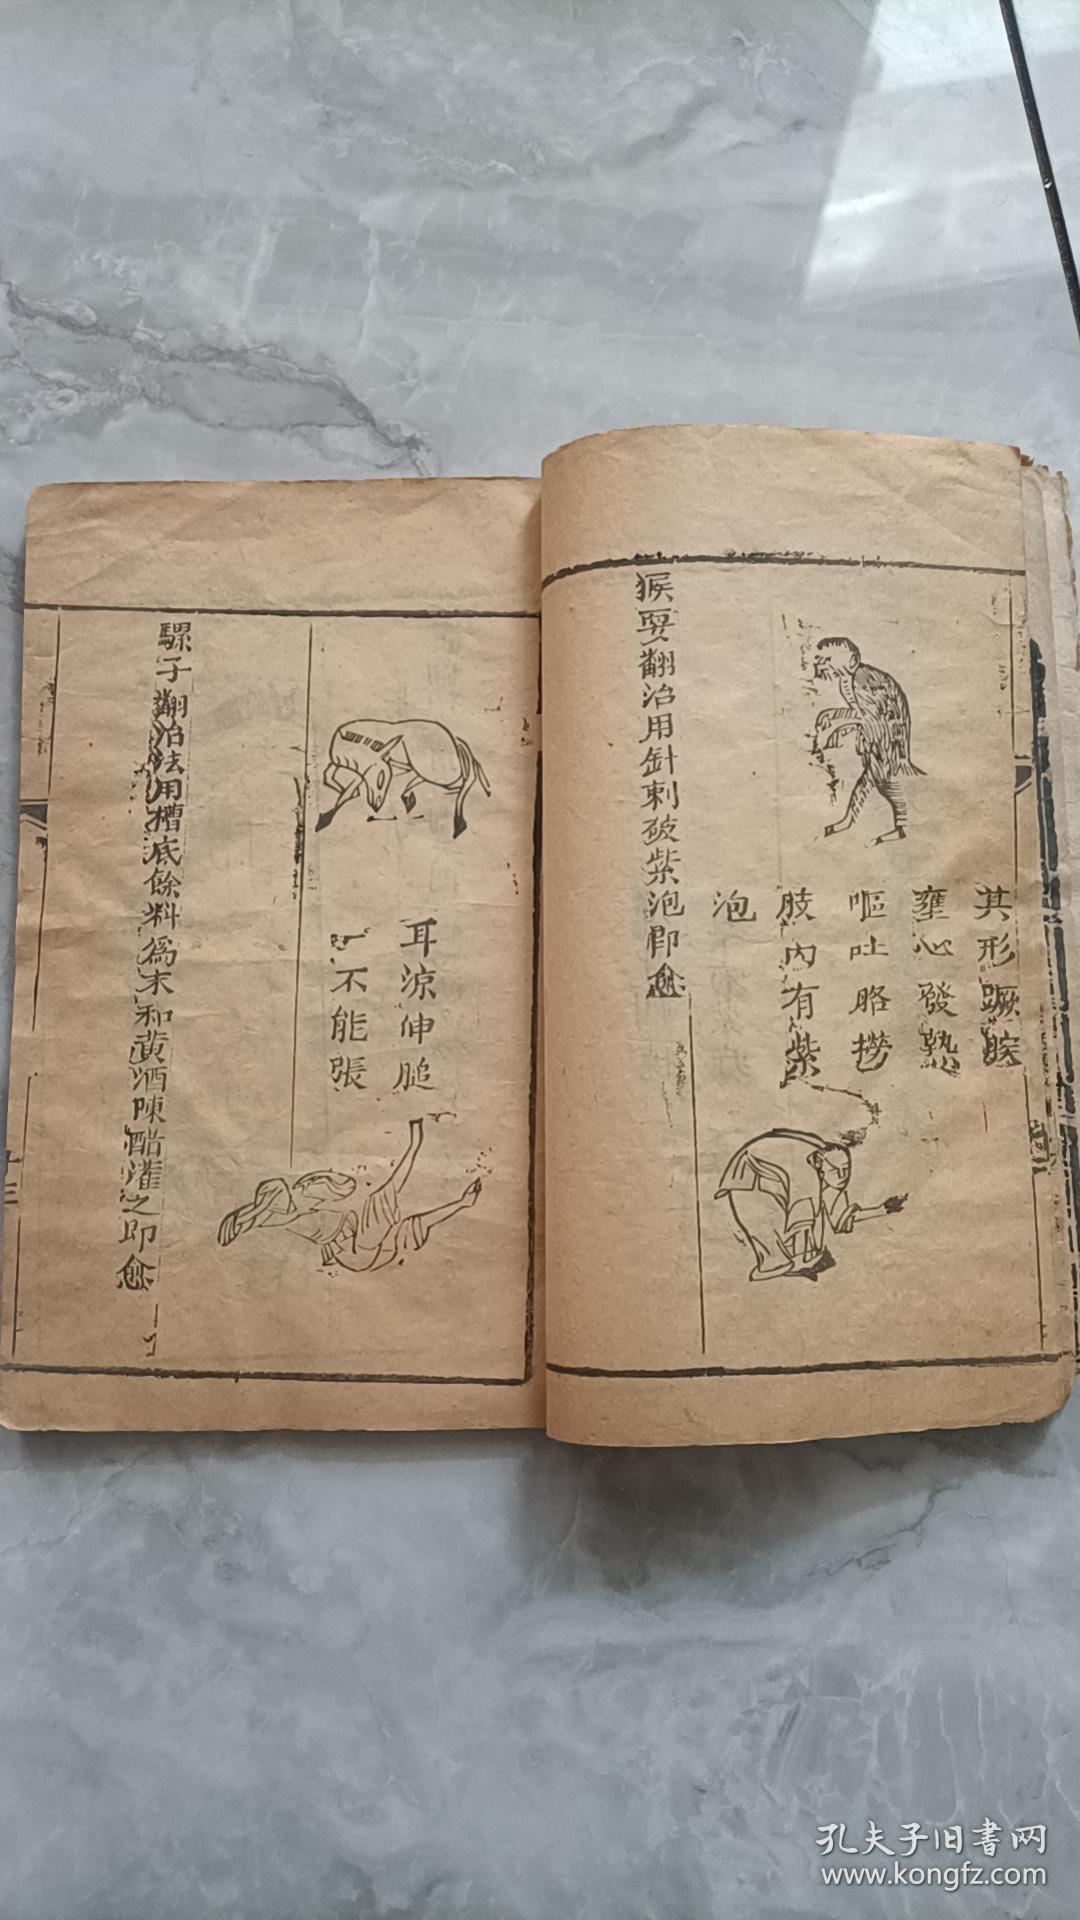 其形蹶腚
壅心發熱
嘔吐胳撈
肢內有紫
泡
猴耍翻治用針刺破紫泡即愈
耳涼伸腿
不能張
騾子翻治法用槽底餘料為末和黃酒陳醋灌之即愈
十三
孔夫子旧書网
www.kongfz.com